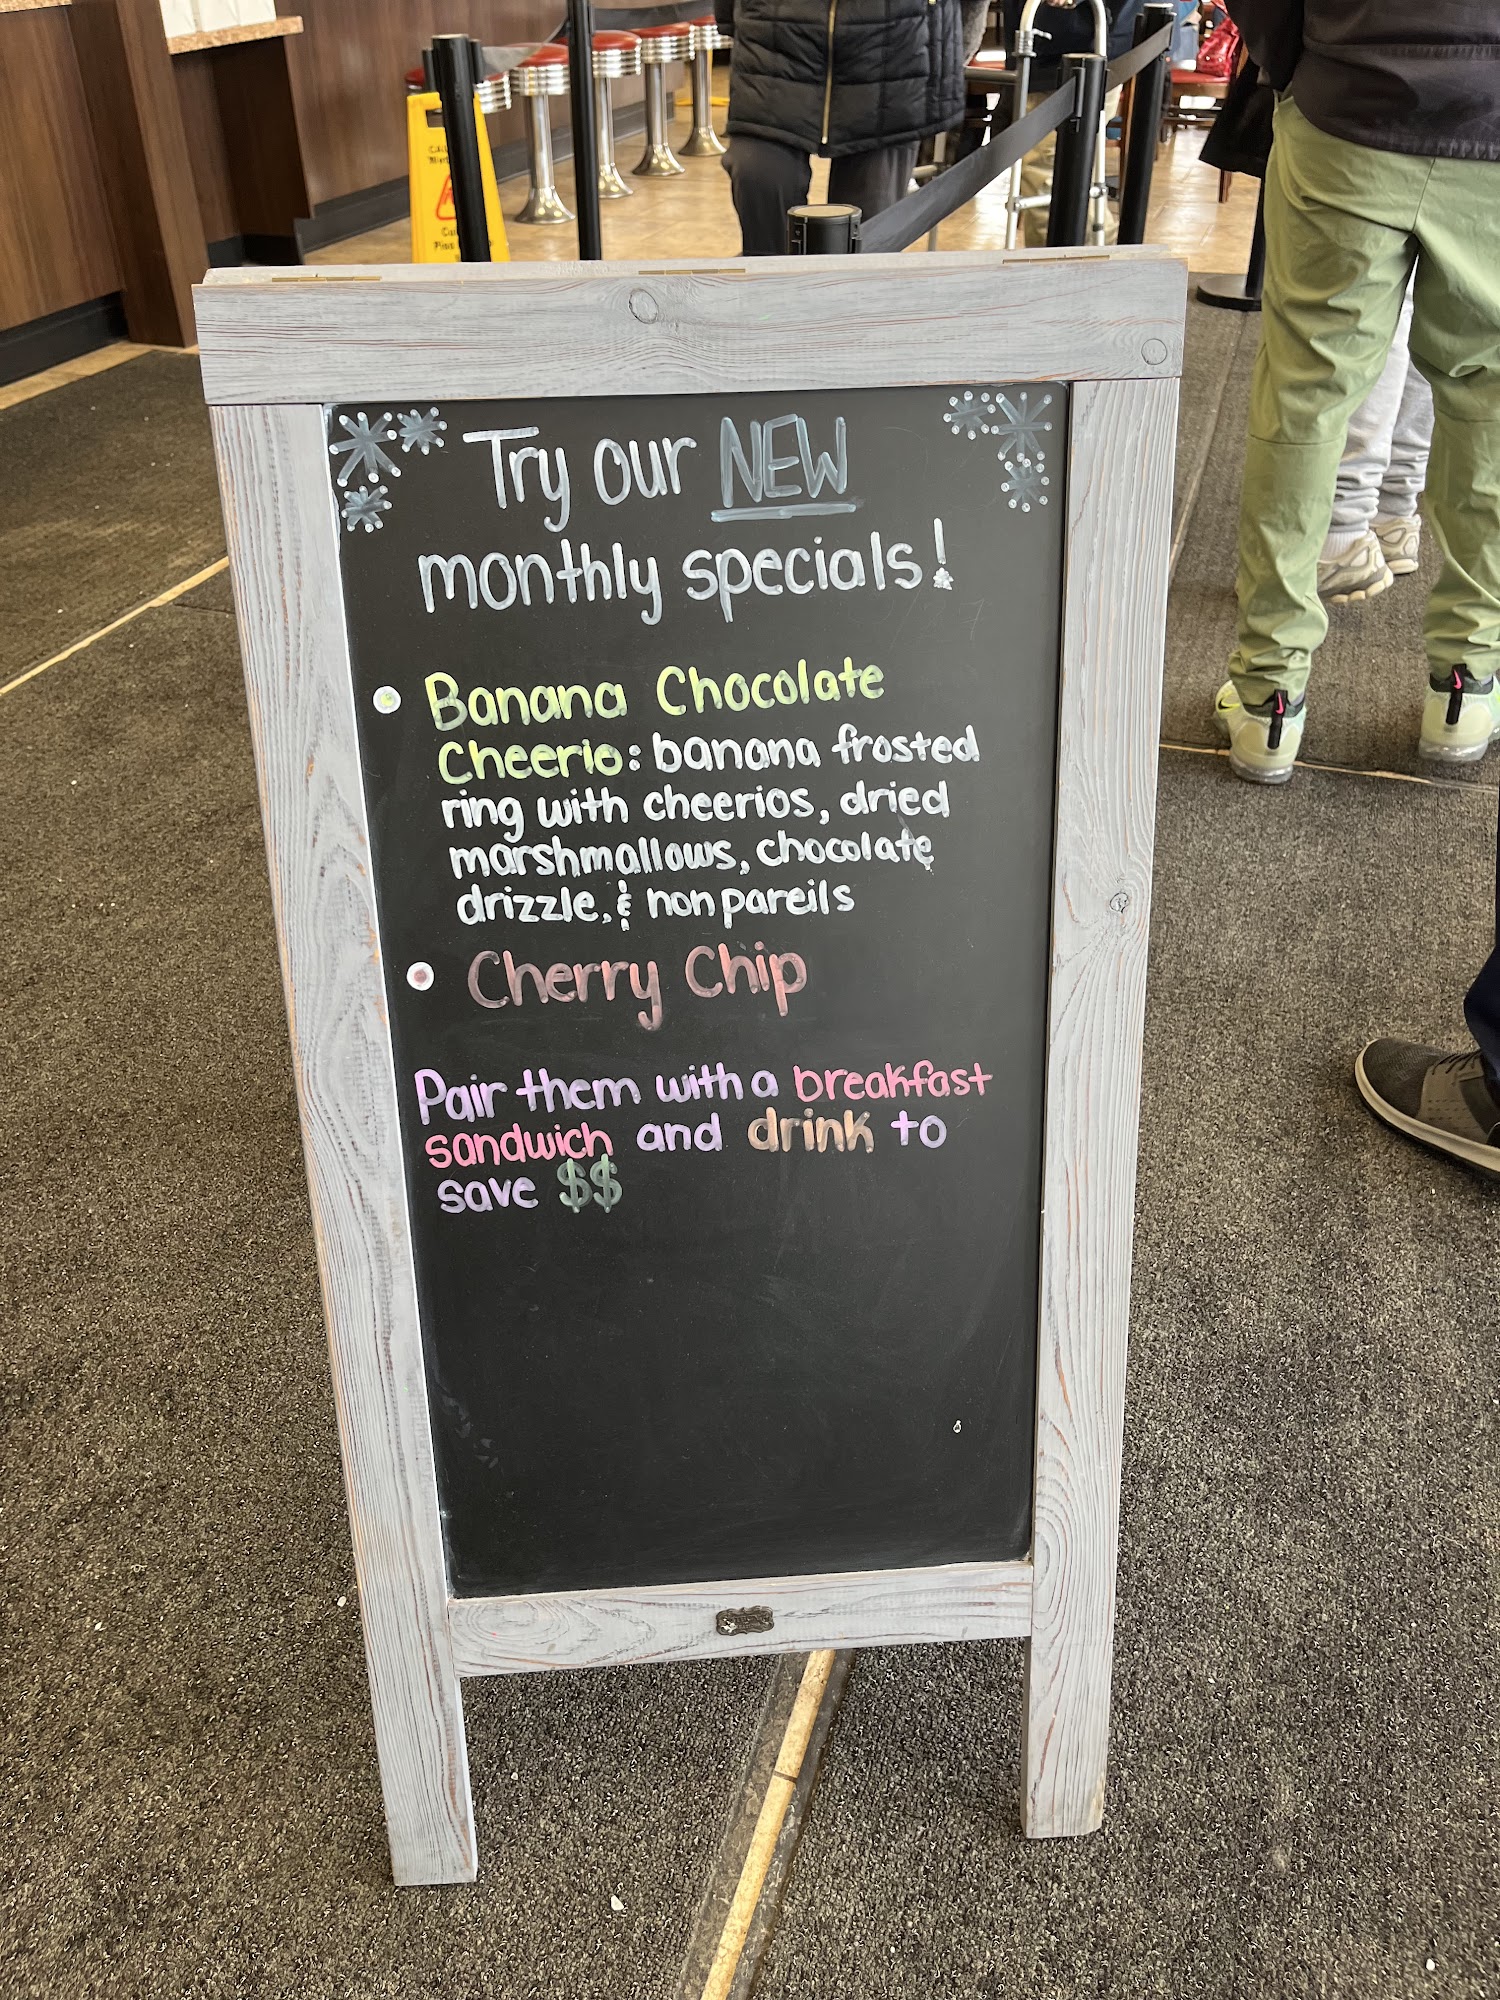 Try our NEW
monthly specials!
Banana Chocolate
Cheerio: banana frosted
ring with cheerios, dried
marshmallows, chocolate
drizzle, & nonpareils
Cherry Chip
Pair them with a breakfast
sandwich and drink to
save $$